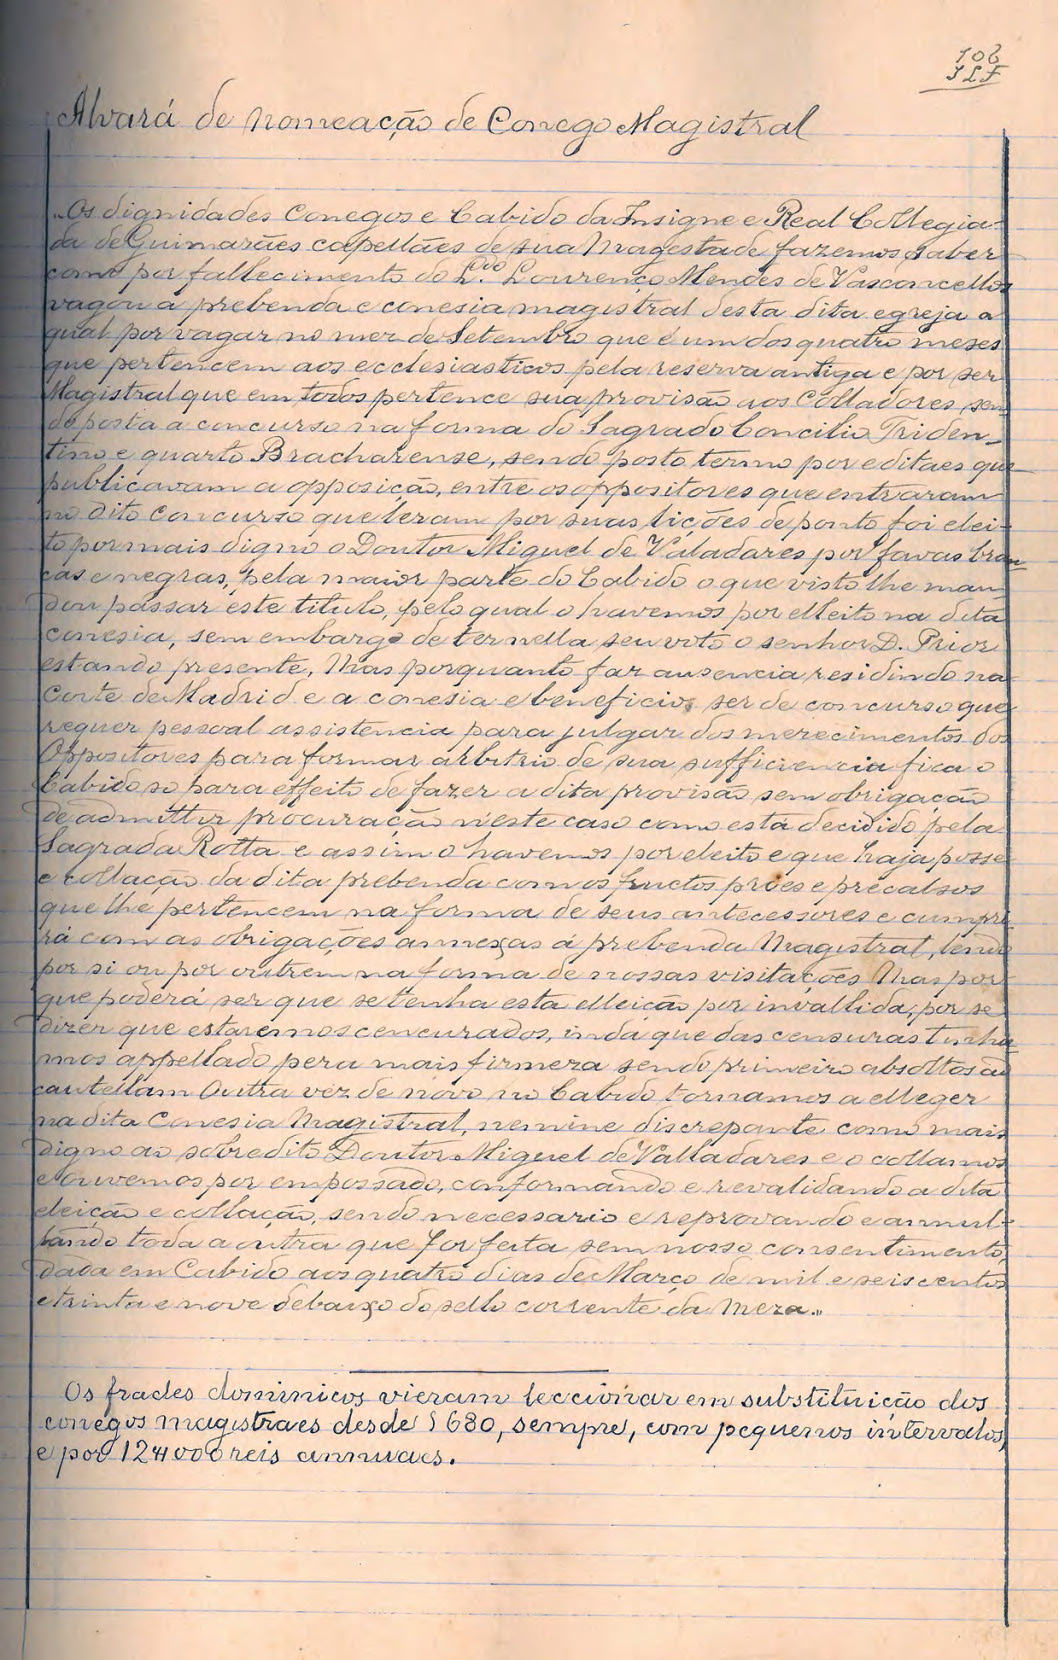 106
JLF
Alvará de nomeação de Conego Magistral
"Os dignidades Conegos e Cabido da Insigne e Real Collegia-
da de Guimarães capellães de sua Magestade fazemos saber
como por fallecimento do L.do Lourenço Mendes de Vasconcellos
vagou a prebenda e conesia magistral desta dita egreja a
qual por vagar no mez de Setembro que é um dos quatro meses
que pertencem aos ecclesiasticos pela reserva antiga e por ser
Magistral que em todos pertence sua provisão aos Colladores, sen-
do posta a concurso na forma do Sagrado Concilio Triden-
tino e quarto Bracharense, sendo posto termo por editaes que
publicavam a opposição, entre os oppositores que entraram
no dito concurso que leram por suas lições de ponto foi elei-
to por mais digno o Doutor Miguel de Valadares por favas bran-
cas e negras, pela maior parte do Cabido o que visto lhe man-
dou passar este titulo, pelo qual o havemos por elleito na dita
conesia, sem embargo de ter nella seu voto o senhor D. Prior
estando presente, Mas porquanto faz ausencia residindo na
Corte de Madrid e a conesia e beneficios ser de concurso que
requer pessoal assistencia para julgar dos merecimentos dos
Oppositores para formar arbitrio de sua sufficiencia fica o
Cabido so para effeito de fazer a dita provisão sem obrigação
de admittir procuração n'este caso como está decidido pela
Sagrada Rotta e assim o havemos por eleito e que haja posse
e collação da dita prebenda com os fructos próes e precalsos
que lhe pertencem na forma de seus antecessores e cumpri-
rá com as obrigações annexas á prebenda Magistral, lendo
por si ou por outrem na forma de nossas visitações Mas por
que poderá ser que se tenha esta elleição por invallida, por se
dizer que estaremos cencurados, inda que das censuras tenha-
mos appellado pera mais firmeza sendo primeiro absoltos ad
cautellam Outra vez de novo no Cabido tornamos a elleger
na dita Conesia Magistral, nemine discrepante como mais
digno ao sobredito Doutor Miguel de Valladares e o collamos
e houvemos por empossado, conformando e revalidando a dita
eleição e collação, sendo necessario e reprovando e annul-
lando toda a outra que for feita sem nosso consentimento,
dada em Cabido aos quatro dias de Março de mil e seis centos
e trinta e nove debaixo do sello corrente da Meza."
Os frades dominicos vieram leccionar em substituição dos
conegos magistraes desde 1680, sempre, com pequenos intervalos,
e por 124000 reis annuaes.